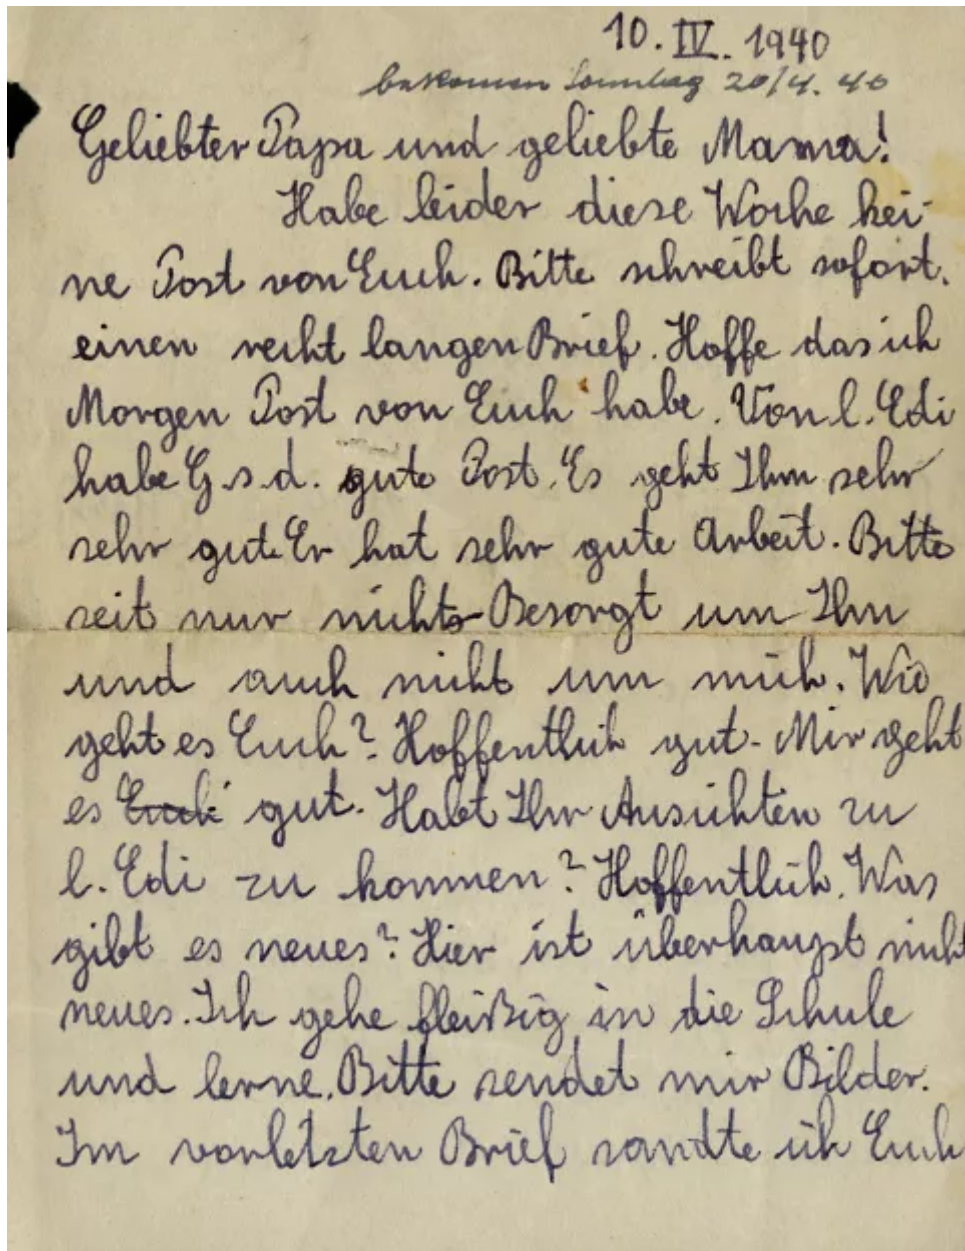 10. IV. 1940
bekomen Sonntag 20/4. 40
Geliebter Papa und geliebte Mama!
Habe leider diese Woche kei-
ne Post von Euch. Bitte schreibt sofort.
einen recht langen Brief. Hoffe das ich
Morgen Post von Euch habe. Von l. Edi
habe G.s.d. gute Post. Es geht Ihm sehr
sehr gut. Er hat sehr gute Arbeit. Bitte
seit nur nichts Besorgt um Ihn
und auch nicht um mich. Wie
geht es Euch? Hoffentlich gut. Mir geht
es Euch gut. Habt Ihr Ausichten zu
l. Edi zu kommen? Hoffentlich. Was
gibt es neues? Hier ist überhaupt nicht
neues. Ich gehe fleißig in die Schule
und lerne. Bitte sendet mir Bilder.
Im vorletzten Brief sandte ich Euch